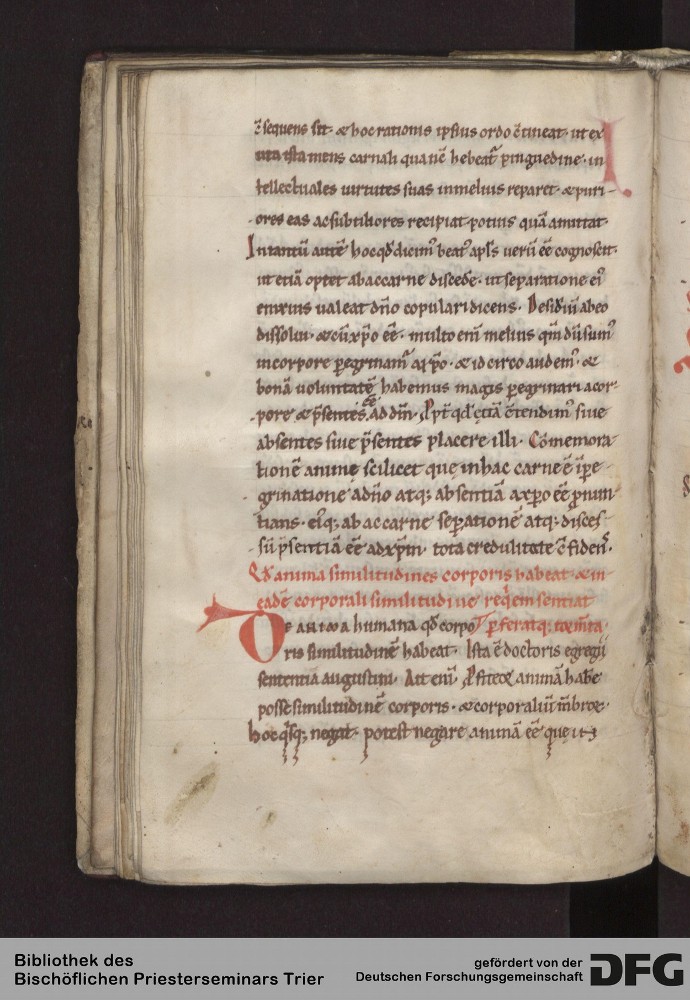 c̄sequens sit· & hoc rationis ipsius ordo c̄tineat· ut ex
uta ista mens carnali qua nc̄ hebeat᷑ pinguedine· in
tellectuales uirtutes suas in melius reparet· & puri
ores eas ac subtiliores recipiat potius quā amittat·
Intantū autē hoc qđ dicim᷒ beat᷒ apl̄s uerū eē cognoscit·
ut etiā optet ab ac carne discede· ut separatione ei᷒
enixius ualeat dn̄o copulari dicens· Desideriū habeo
dissolui· & cū xp̄o eē· multo eni melius qm̄ dū sum᷒
in corpore peregrinam᷒ a xp̄o· & idcirco audem᷒· &
bonā uoluntatē habemus magis peregrinari a cor
pore & p̄sentes eē ad dn̄m· Ppt̄ qđ etiā c̄tendim᷒ siue
absentes siue p̄sentes placere illi· Cōmemora
tionē animę scilicet que in hac carne ē ip̄e
grinatione a dn̄o atq; absentiā a xp̄o eē pnun
tians· ei᷒q; ab ac carne separationē atq; disces
sū p̄sentiā eē ad xp̄m· tota credulitate c̄fidens·
Qđ anima similitudines corporis habeat & in
eadē corporali similitudine requiem sentiat
De anima humana qđ corpo perferatq; tormta
ris similitudinē habeat· Ista ē doctoris egregii
sententia augustini· Ait eni· Pfiteor animā habe
posse similitudinē corporis· & corporaliū m̄broꝝ·
hoc qisq; negat· potest negare animā eē que i
Bibliothek des
Bischöflichen Priesterseminars Trier
gefördert von der
Deutschen Forschungsgemeinschaft DFG